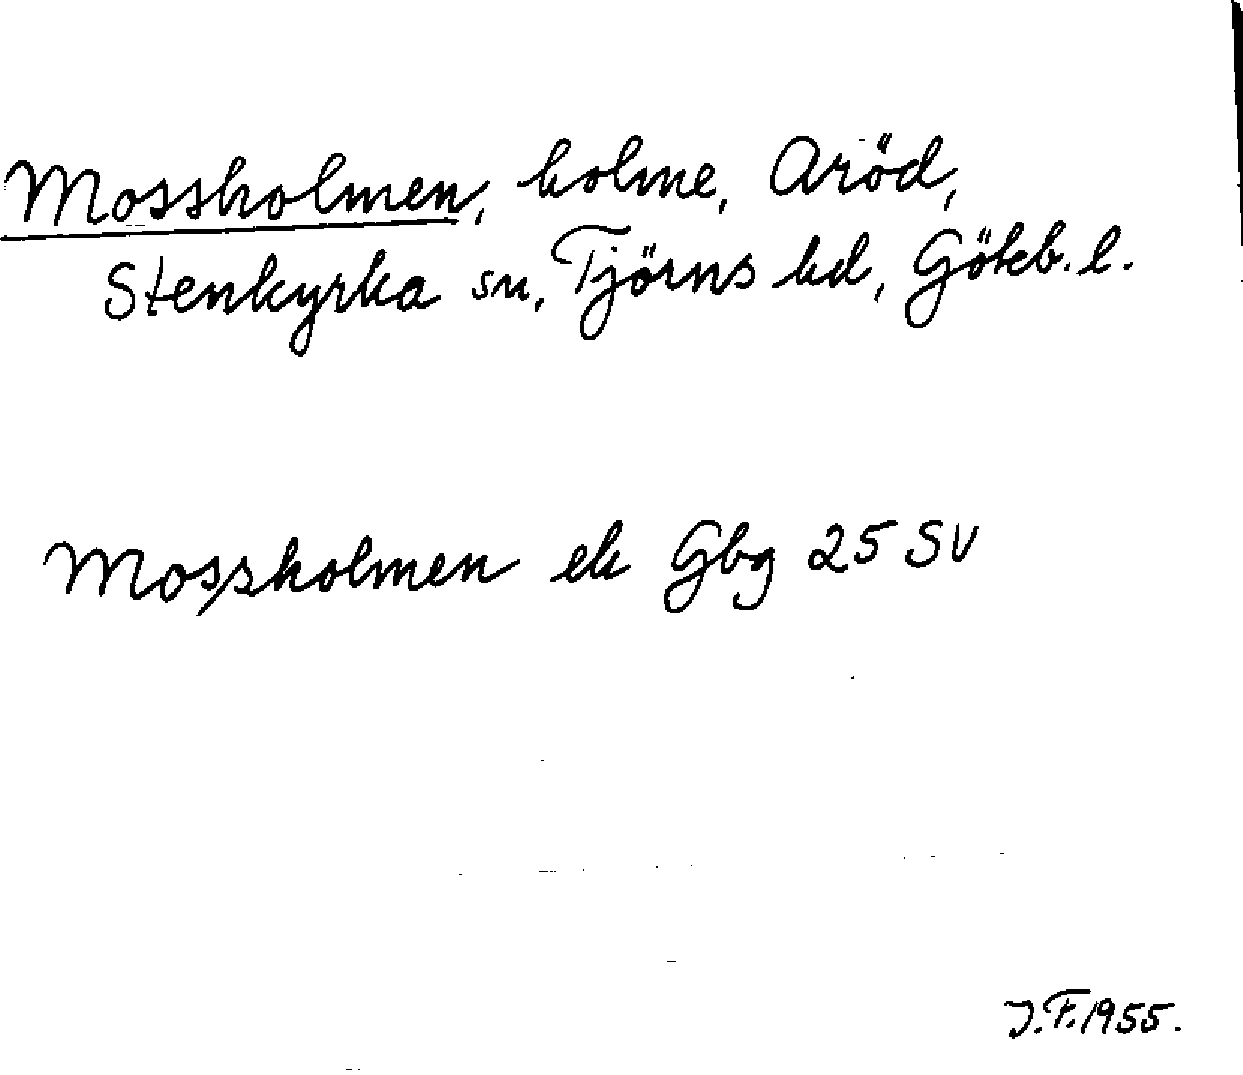 Mossholmen, holme, Aröd,
Stenkyrka sn, Tjörns hd, Göteb. l.
Mossholmen ek Gbg 25 SV
J.F. 1955.